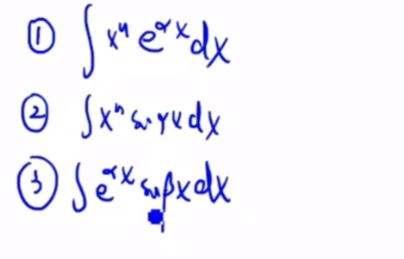 ① ∫ xⁿ e^{αx} dx
② ∫ xⁿ sin γx dx
③ ∫ e^{αx} sin βx dx